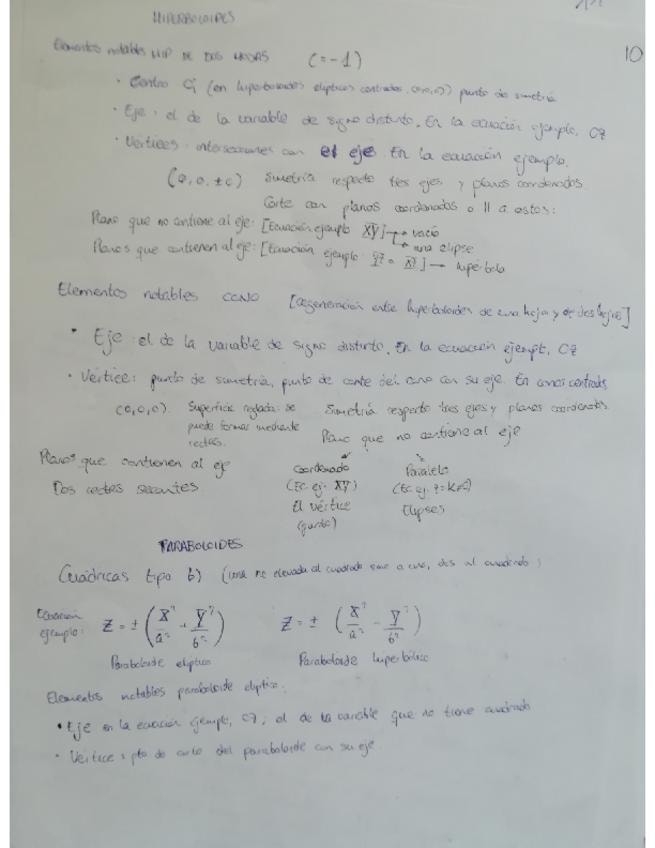 HIPERBOLOIDES
10
Elementos notables HIP DE DOS HOJAS (= -1)
• Centro C, (en hiperboloides elípticos centrados, (0,0,0)) punto de simetría
• Eje: el de la variable de signo distinto. En la ecuación ejemplo, OZ
• Vértices: intersecciones con el eje. En la ecuación ejemplo,
(0, 0, ±c) Simetría respecto tres ejes y planos coordenados.
Corte con planos coordenados o II a estos:
Plano que no contiene al eje: [Ecuación ejemplo XY] → vacío
→ una elipse
Planos que contienen al eje: [Ecuación ejemplo YZ o XZ] → hipérbola
Elementos notables CONO [Degeneración entre hiperboloides de una hoja y de dos hojas]
• Eje: el de la variable de signo distinto. En la ecuación ejempl, OZ
• Vértice: punto de simetría, punto de corte del cono con su eje. En conos centrados
(0,0,0). Superficie reglada: se Simetría respecto tres ejes y planos coordenados.
puede formar mediante
rectas. Plano que no contiene al eje
Planos que contienen al eje Coordenado Paralelo
Dos rectas secantes (Ec ej. XY) (Ec ej. z=k≠0)
El vértice Elipses
(punto)
PARABOLOIDES
Cuádricas tipo b) (una no elevada al cuadrado a una, dos al cuadrado)
Ecuación ejemplo: Z = ± (X²/a² + Y²/b²) Z = ± (X²/a² - Y²/b²)
Paraboloide elíptico Paraboloide hiperbólico
Elementos notables paraboloide elíptico:
• Eje en la ecuación ejemplo, OZ; el de la variable que no tiene cuadrado
• Vértice: pto de corte del paraboloide con su eje.